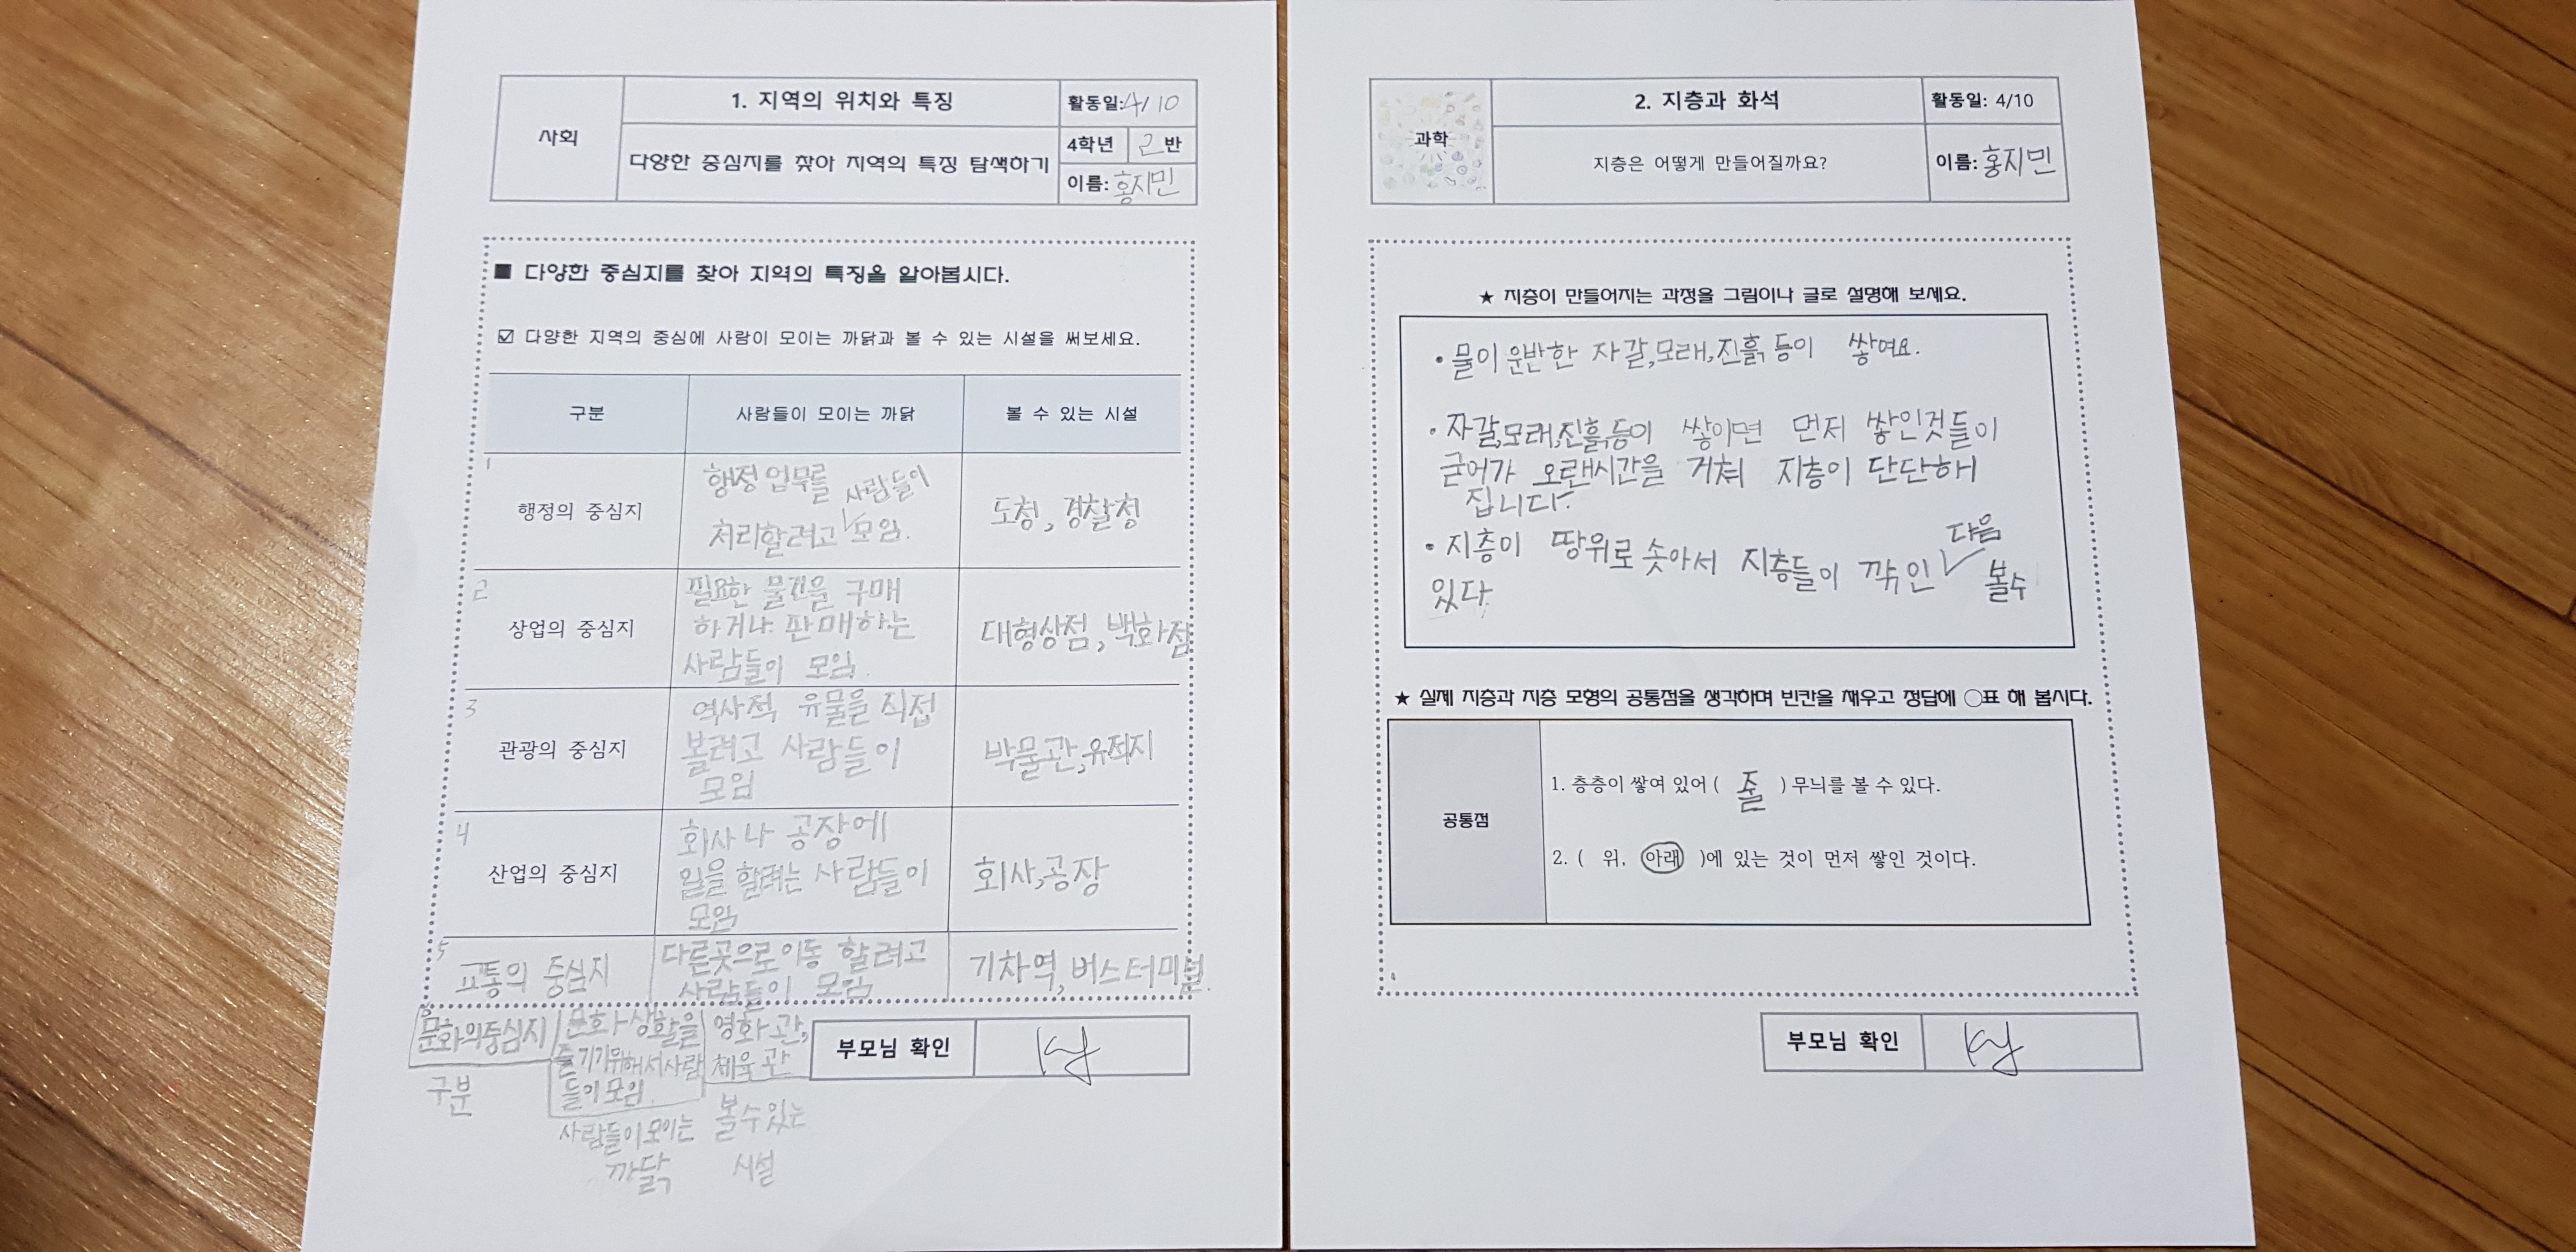 사회
1. 지역의 위치와 특징
활동일: 4/10
다양한 중심지를 찾아 지역의 특징 탐색하기
4학년 2반
이름: 홍지민
■ 다양한 중심지를 찾아 지역의 특징을 알아봅시다.
☑ 다양한 지역의 중심에 사람이 모이는 까닭과 볼 수 있는 시설을 써보세요.
구분
사람들이 모이는 까닭
볼 수 있는 시설
1
행정의 중심지
행정 업무를 사람들이
처리할려고 모임.
도청, 경찰청
2
상업의 중심지
필요한 물건을 구매
하거나 판매하는
사람들이 모임.
대형상점, 백화점
3
관광의 중심지
역사적 유물을 직접
볼려고 사람들이
모임
박물관, 유적지
4
산업의 중심지
회사나 공장에
일을 할려는 사람들이
모임
회사, 공장
5
교통의 중심지
다른곳으로 이동 할려고
사람들이 모임
기차역, 버스터미널
6
문화의중심지
문화생활을
즐기기위해서 사람
들이모임
영화관,
체육관
구분
사람들이모이는
까닭
볼수있는
시설
부모님 확인
과학
2. 지층과 화석
활동일: 4/10
지층은 어떻게 만들어질까요?
이름: 홍지민
★ 지층이 만들어지는 과정을 그림이나 글로 설명해 보세요.
• 물이 운반한 자갈,모래,진흙 등이 쌓여요.
• 자갈,모래,진흙등이 쌓이면 먼저 쌓인것들이
굳어가 오랜시간을 거쳐 지층이 단단해
집니다.
• 지층이 땅위로 솟아서 지층들이 깍인 다음 볼수
있다.
★ 실제 지층과 지층 모형의 공통점을 생각하며 빈칸을 채우고 정답에 ○표 해 봅시다.
공통점
1. 층층이 쌓여 있어 ( 줄 )무늬를 볼 수 있다.
2. ( 위, 아래 )에 있는 것이 먼저 쌓인 것이다.
부모님 확인